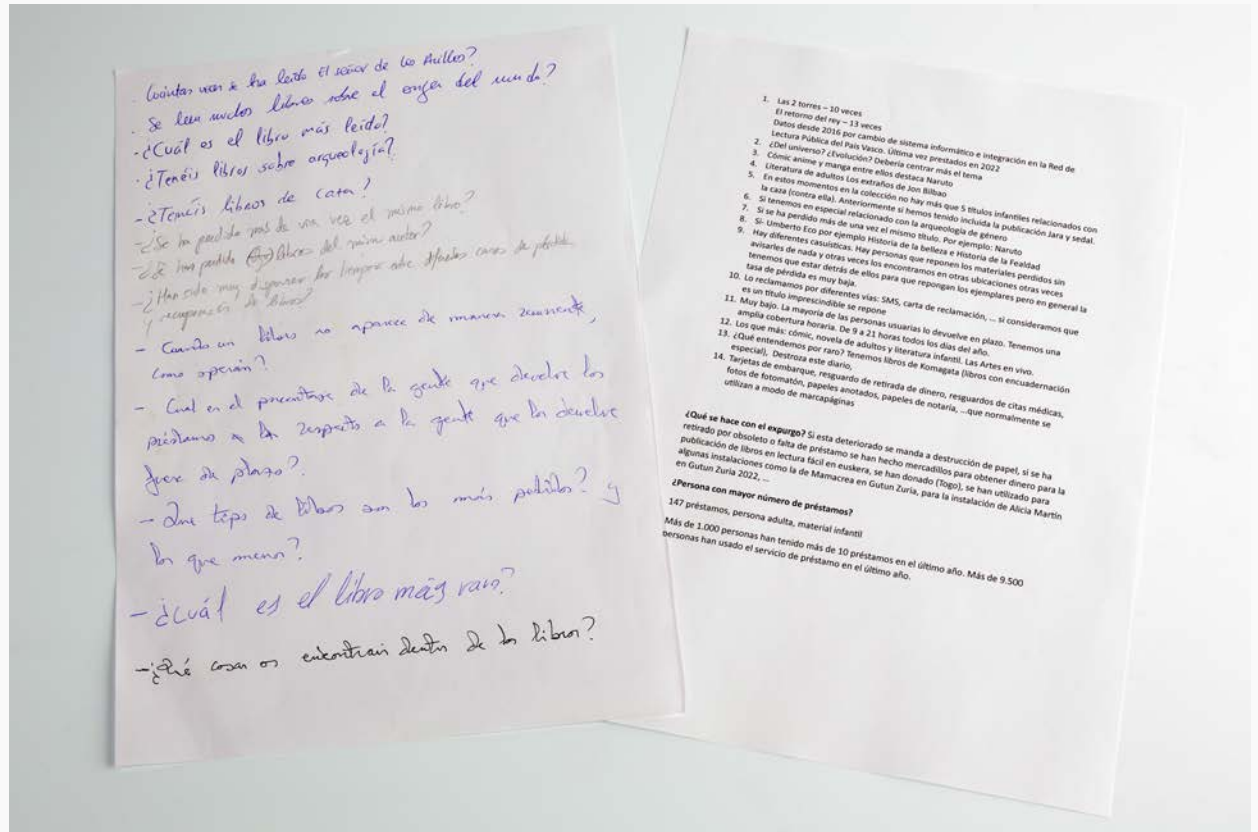 . Cuántas veces se ha leído El señor de los Anillos?
. Se leen muchos libros sobre el origen del mundo?
. ¿Cuál es el libro más leído?
. ¿Tenéis libros sobre arqueología?
- ¿Tenéis libros de caza?
- ¿Se ha perdido más de una vez el mismo libro?
- ¿Se han perdido libros del mismo autor?
- ¿Han sido muy dispares los tiempos entre diferentes casos de pérdida
y recuperación de libros?
- Cuando un libro no aparece de manera
como operáis?
- Cual es el porcentaje de la gente que devuelve los
préstamos respecto a la gente que los devuelve
fuera de plazo?
- Que tipo de libros son los más pedidos? y
los que menos?
- ¿Cuál es el libro más raro?
- ¿Qué cosas os encontrais dentro de los libros?
1. Las 2 torres – 10 veces
El retorno del rey – 13 veces
Datos desde 2016 por cambio de sistema informático e integración en la Red de
Lectura Pública del País Vasco. Última vez prestados en 2022
2. ¿Del universo? ¿Evolución? Debería centrar más el tema
3. Cómic anime y manga entre ellos destaca Naruto
4. Literatura de adultos Los extraños de Jon Bilbao
5. En estos momentos en la colección no hay más que 5 títulos infantiles relacionados con
la caza (contra ella). Anteriormente si hemos tenido incluida la publicación Jara y sedal.
6. Si tenemos en especial relacionado con la arqueología de género
7. Si se ha perdido más de una vez el mismo título. Por ejemplo: Naruto
8. Si- Umberto Eco por ejemplo Historia de la belleza e Historia de la Fealdad
9. Hay diferentes casuísticas. Hay personas que reponen los materiales perdidos sin
avisarles de nada y otras veces los encontramos en otras ubicaciones otras veces
tenemos que estar detrás de ellos para que repongan los ejemplares pero en general la
tasa de pérdida es muy baja.
10. Lo reclamamos por diferentes vías: SMS, carta de reclamación, ... si consideramos que
es un título imprescindible se repone
11. Muy bajo. La mayoría de las personas usuarias lo devuelve en plazo. Tenemos una
amplia cobertura horaria. De 9 a 21 horas todos los días del año.
12. Los que más: cómic, novela de adultos y literatura infantil. Las Artes en vivo.
13. ¿Qué entendemos por raro? Tenemos libros de Komagata (libros con encuadernación
especial), Destroza este diario,
14. Tarjetas de embarque, resguardo de retirada de dinero, resguardos de citas médicas,
fotos de fotomatón, papeles anotados, papeles de notaría, ...que normalmente se
utilizan a modo de marcapáginas
¿Qué se hace con el expurgo? Si esta deteriorado se manda a destrucción de papel, si se ha
retirado por obsoleto o falta de préstamo se han hecho mercadillos para obtener dinero para la
publicación de libros en lectura fácil en euskera, se han donado (Togo), se han utilizado para
algunas instalaciones como la de Mamacrea en Gutun Zuria, para la instalación de Alicia Martín
en Gutun Zuria 2022, ...
¿Persona con mayor número de préstamos?
147 préstamos, persona adulta, material infantil
Más de 1.000 personas han tenido más de 10 préstamos en el último año. Más de 9.500
personas han usado el servicio de préstamo en el último año.